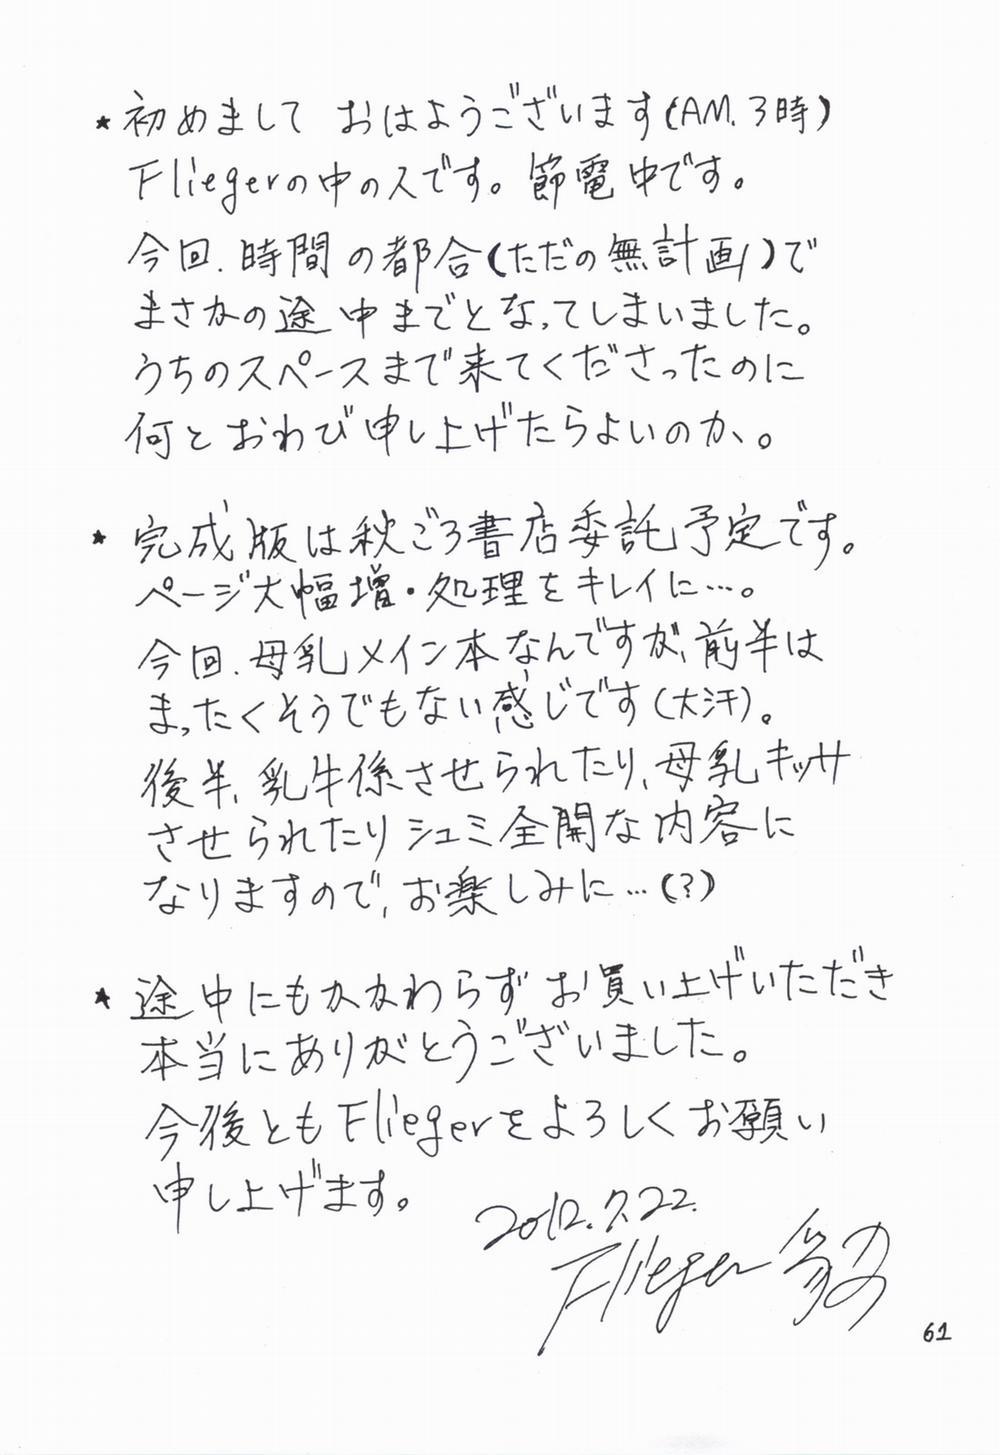 ★初めまして おはようございます(AM.3時)
Fliegerの中の人です。節電中です。
今回.時間の都合(ただの無計画)で
まさかの途中までとなってしまいました。
うちのスペースまで来てくださったのに
何とおわび申し上げたらよいのか、。
★完成版は秋ごろ書店委託予定です。
ページ大幅増・処理をキレイに…。
今回.母乳メイン本なんですが、前半は
まったくそうでもない感じです(大汗)。
後半、乳牛係させられたり、母乳キッサ
させられたりシュミ全開な内容に
なりますので、お楽しみに…(?)
★途中にもかかわらずお買い上げいただき
本当にありがとうございました。
今後ともFliegerをよろしくお願い
申し上げます。
2012.7.22.
Flieger
61